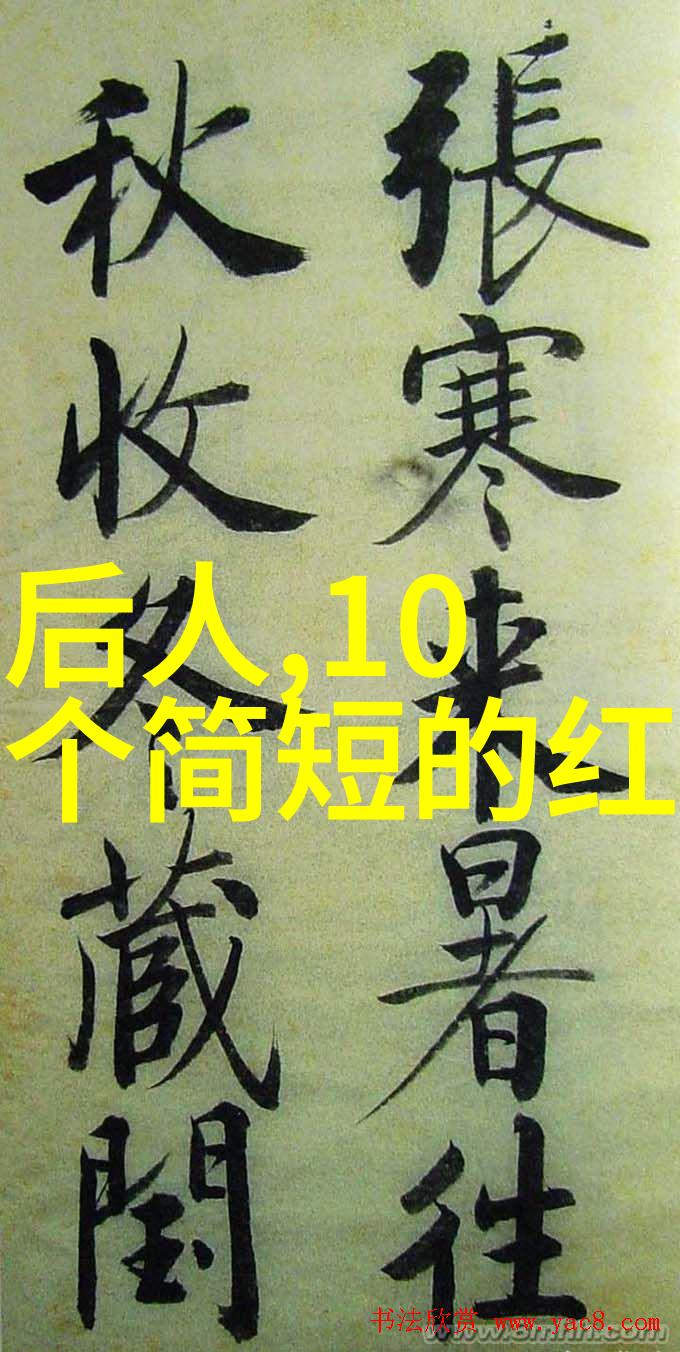 張寒来暑往
秋收冬蔵閏
后人,10
个简短的红
书法欣赏 www.yac8.com